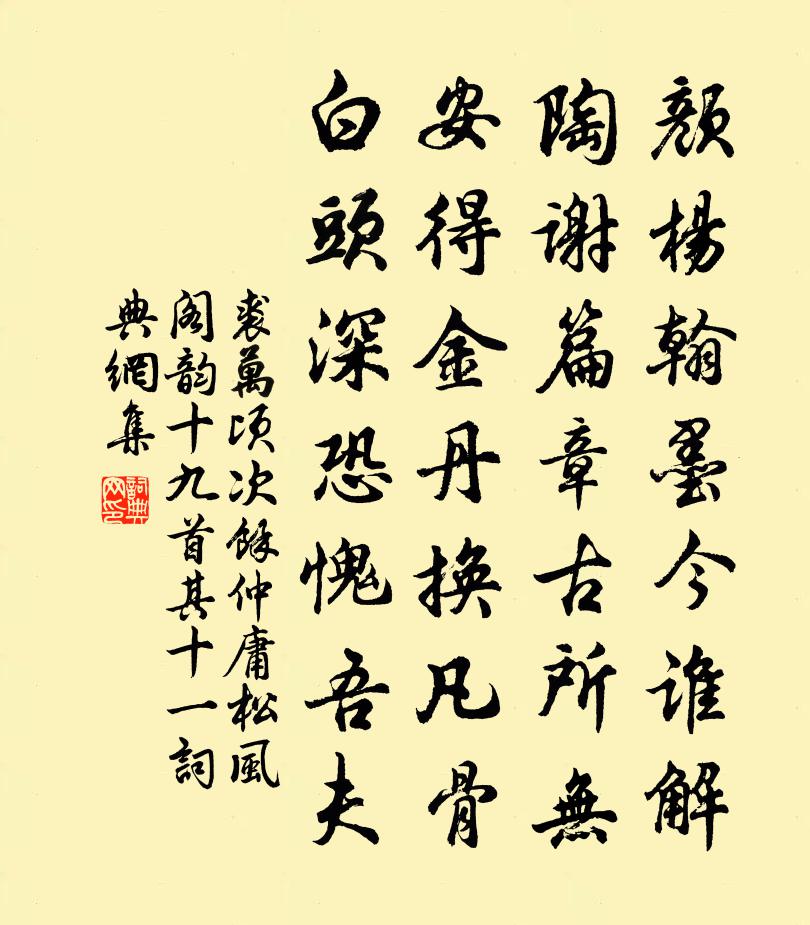 顏楊翰墨今誰解
陶謝篇章古所無
安得金丹換凡骨
白頭深恐愧吾夫
裘萬頃次餘仲庸松風
閣韵十九首其十一詞
典網集
詞典
网印